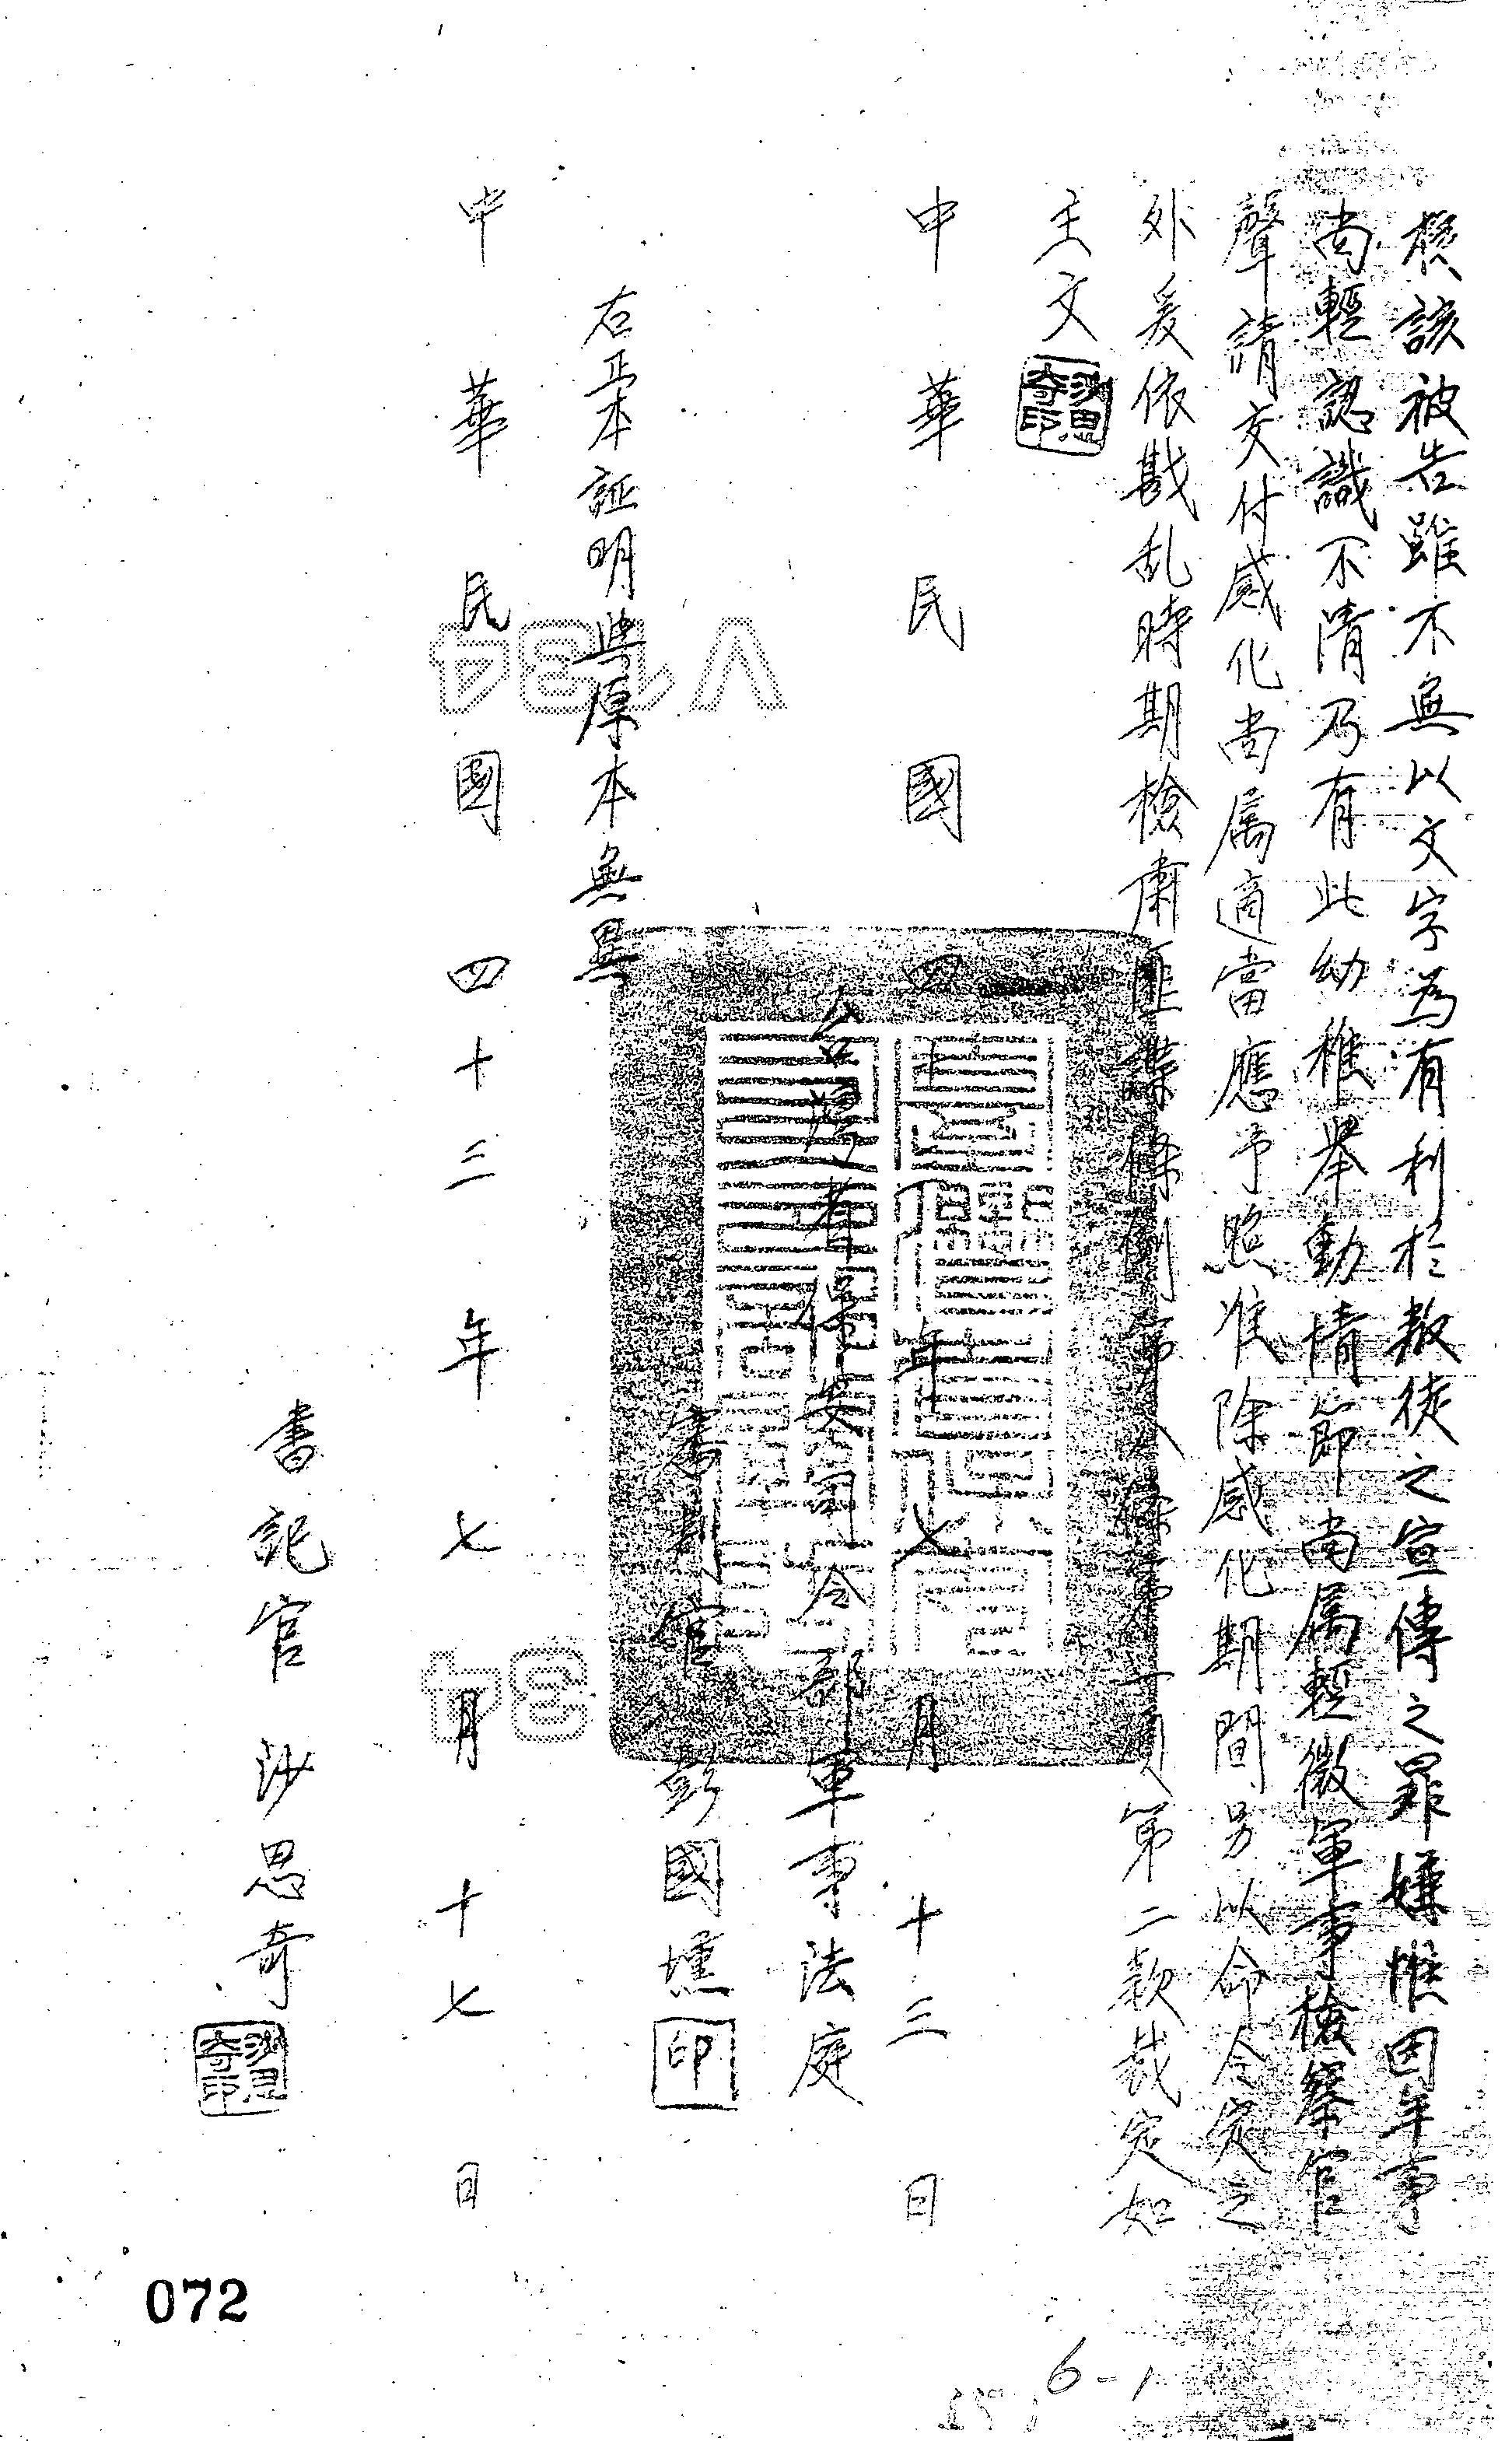 核該被告雖不無以文字為有利於叛徒之宣傳之罪嫌惟因年事
尚輕認識不清乃有此幼稚舉動情節尚属輕微軍事檢察官
聲請交付感化尚属適當應予照准除感化期間另以命令定之
外爰依戡乱時期檢肅匪諜條例第八條第一項第二款裁定如
主文
沙思奇印
中華民國四十三年七月十三日
台灣省保安司令部軍事法庭
審判官彭國壎印
右正本証明與原本無異
中華民國四十三年七月十七日
書記官沙思奇
沙思奇印
V 134
34
072
6-1